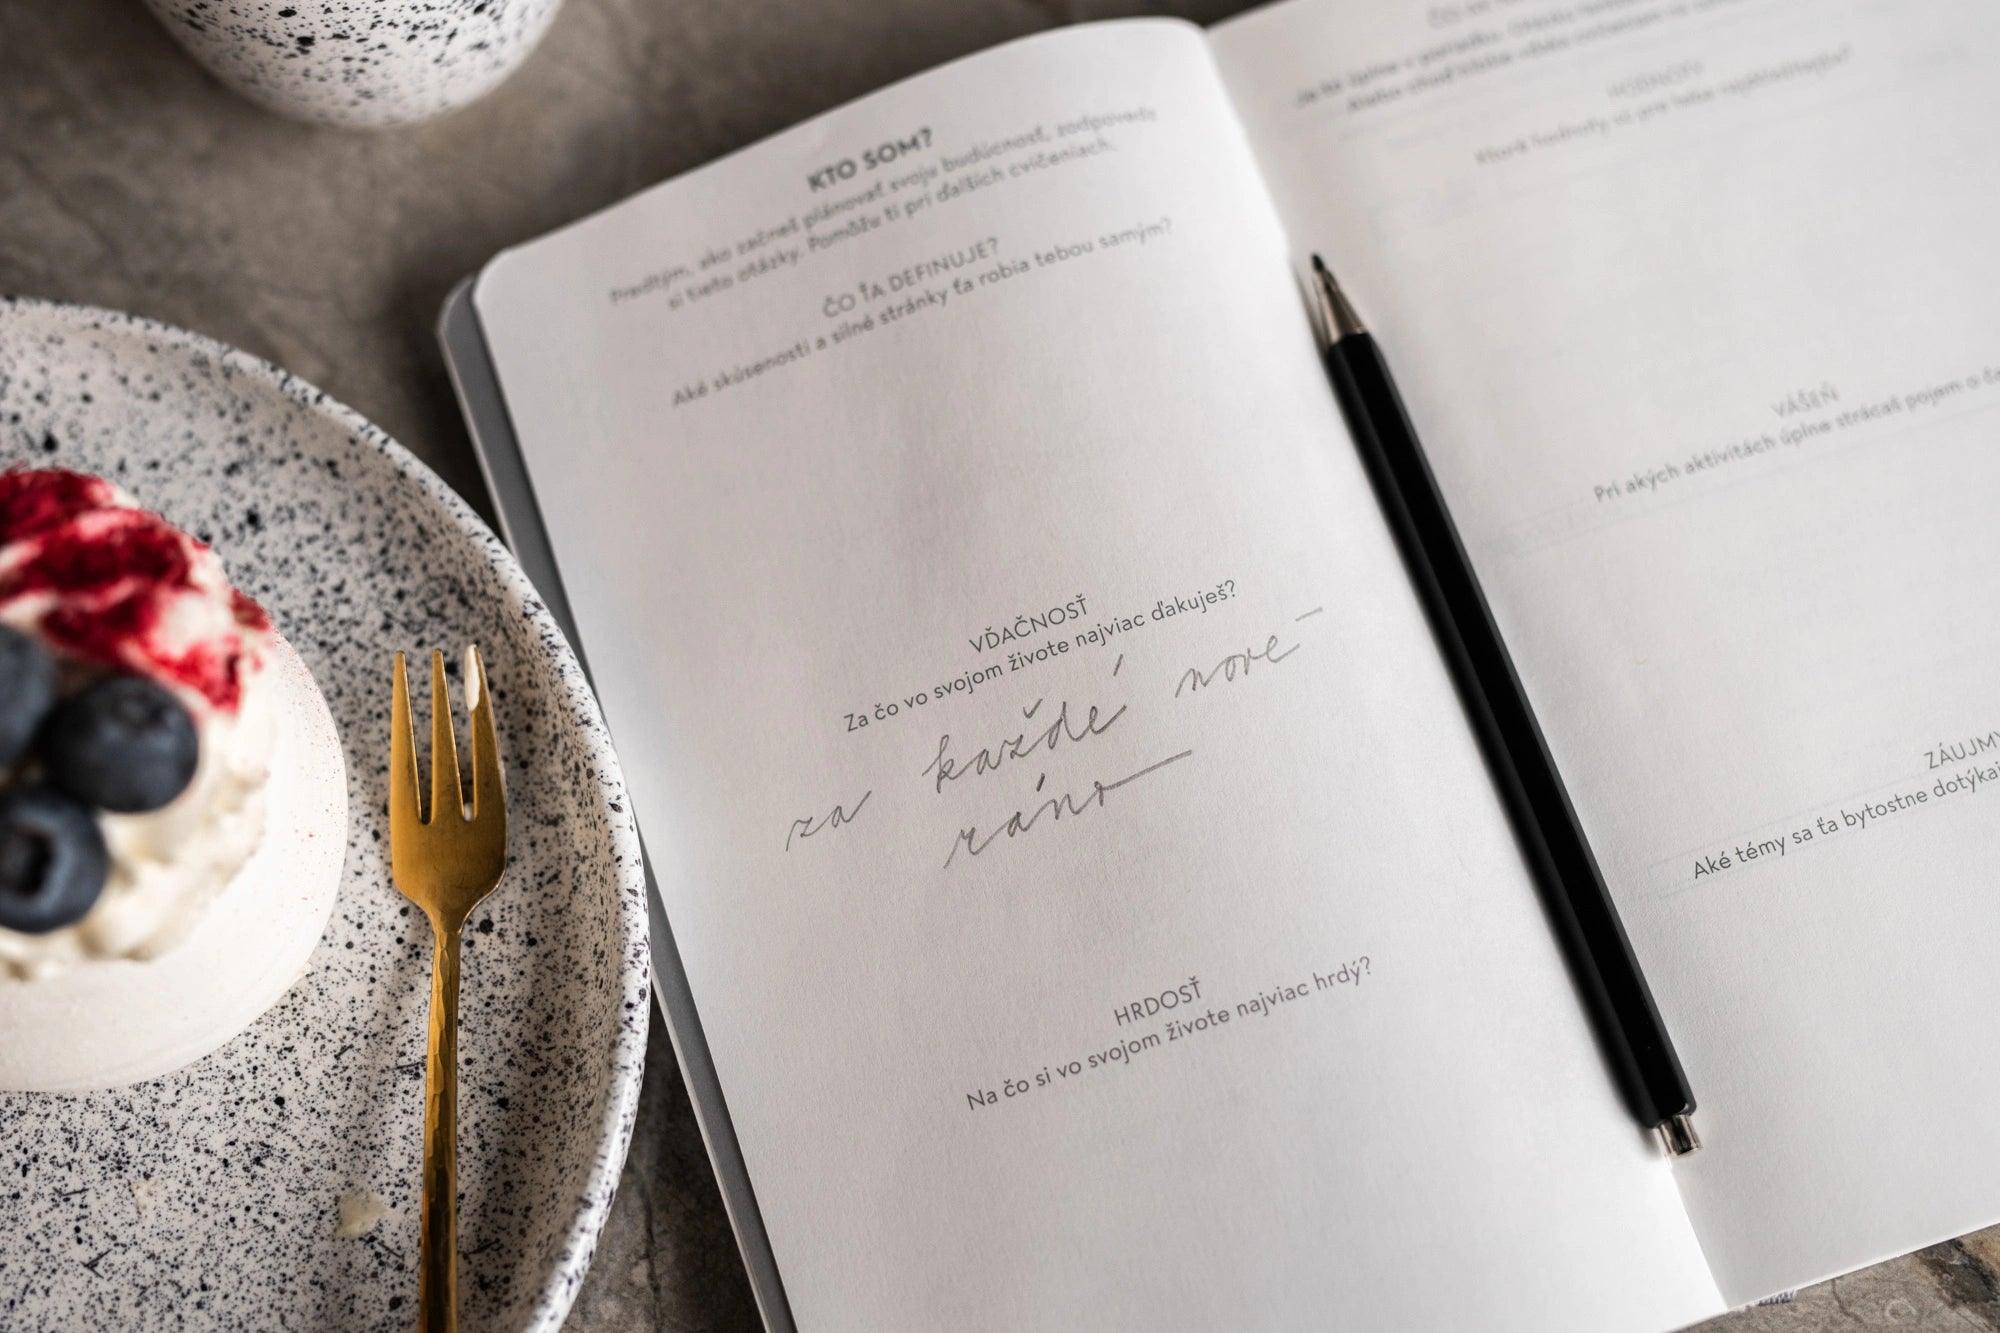 KTO SOM?
Predtým, ako začneš plánovať svoju budúcnosť, zodpovedz
si tieto otázky. Pomôžu ti pri ďalších cvičeniach.
ČO ŤA DEFINUJE?
Aké skúsenosti a silné stránky ťa robia tebou samým?
VĎAČNOSŤ
Za čo vo svojom živote najviac ďakuješ?
za každé nové
ráno
HRDOSŤ
Na čo si vo svojom živote najviac hrdý?
HODNOTY
Ktoré hodnoty sú pre teba najdôležitejšie?
VÁŠEŇ
Pri akých aktivitách úplne strácaš pojem o
ZÁUJMY
Aké témy sa ťa bytostne